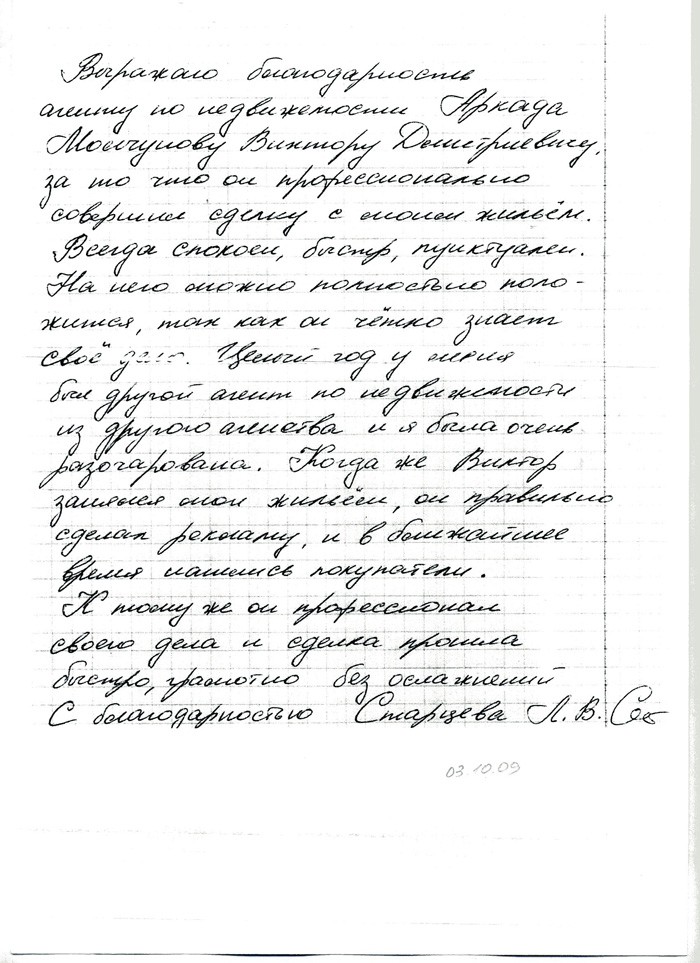 Выражаю благодарность
агенту по недвижемости Аркада
Молчунову Виктору Дмитриевичу,
за то что он профессионально
совершил сделку с моим жильём.
Всегда спокоен, быстр, пунктуален.
На него можно полностью поло-
жится, так как он чётко знает
своё дело. Целый год у меня
был другой агент по недвижемости
из другого агенства и я была очень
разочарована. Когда же Виктор
занялся мои жильём, он правильно
сделал рекламу, и в ближайшее
время нашлись покупатели.
К тому же он профессионал
своего дела и сделка прошла
быстро, грамотно без ослажнений
С благодарностью Старцева Л.В.
03.10.09